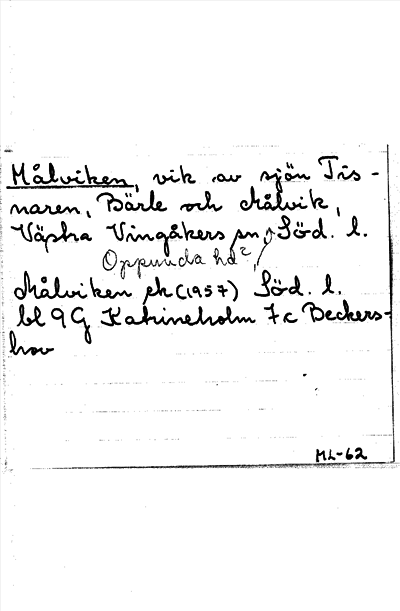 Målviken, vik av sjön Tis-
naren, Bärle och Målvik,
Västra Vingåkers sn, Söd. l.
Oppunda hd?,
Målviken ek (1957) Söd. l.
bl 9G Katrineholm 7c Beckers-
hov
ML-62